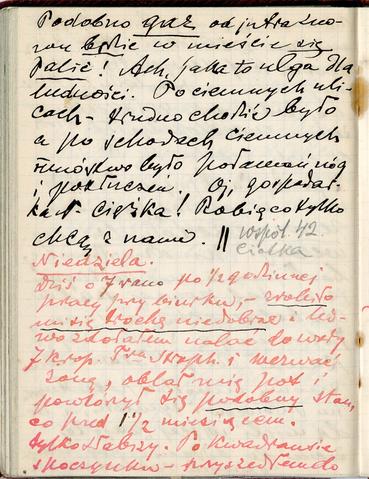 Podobno gaz od jutra zno-
wu będzie w mieście się
palić! Ach, jaka to ulga dla
ludności. Po ciemnych uli-
cach - trudno chodzić było
a po schodach ciemnych
mnóstwo było połamań nóg
i potłuczeń. Oj, gospodar-
ka ciężka! Robią co tylko
chcą z nami. ||
współ. 42
Ciotka
Niedziela.
Dziś o 7 rano po 1/2 godzinnej
pracy przy biurku, - zrobiło
mi się trochę niedobrze i led-
wo zdołałem nalać do wody
7 krop. Tra Stroph. i wezwać
żonę, oblał mię pot i
powtórzył się podobny stan,
co przed 1 1/2 miesiącem.
tylko słabszy. Po kwadransie
spoczynku - przyszedłem do